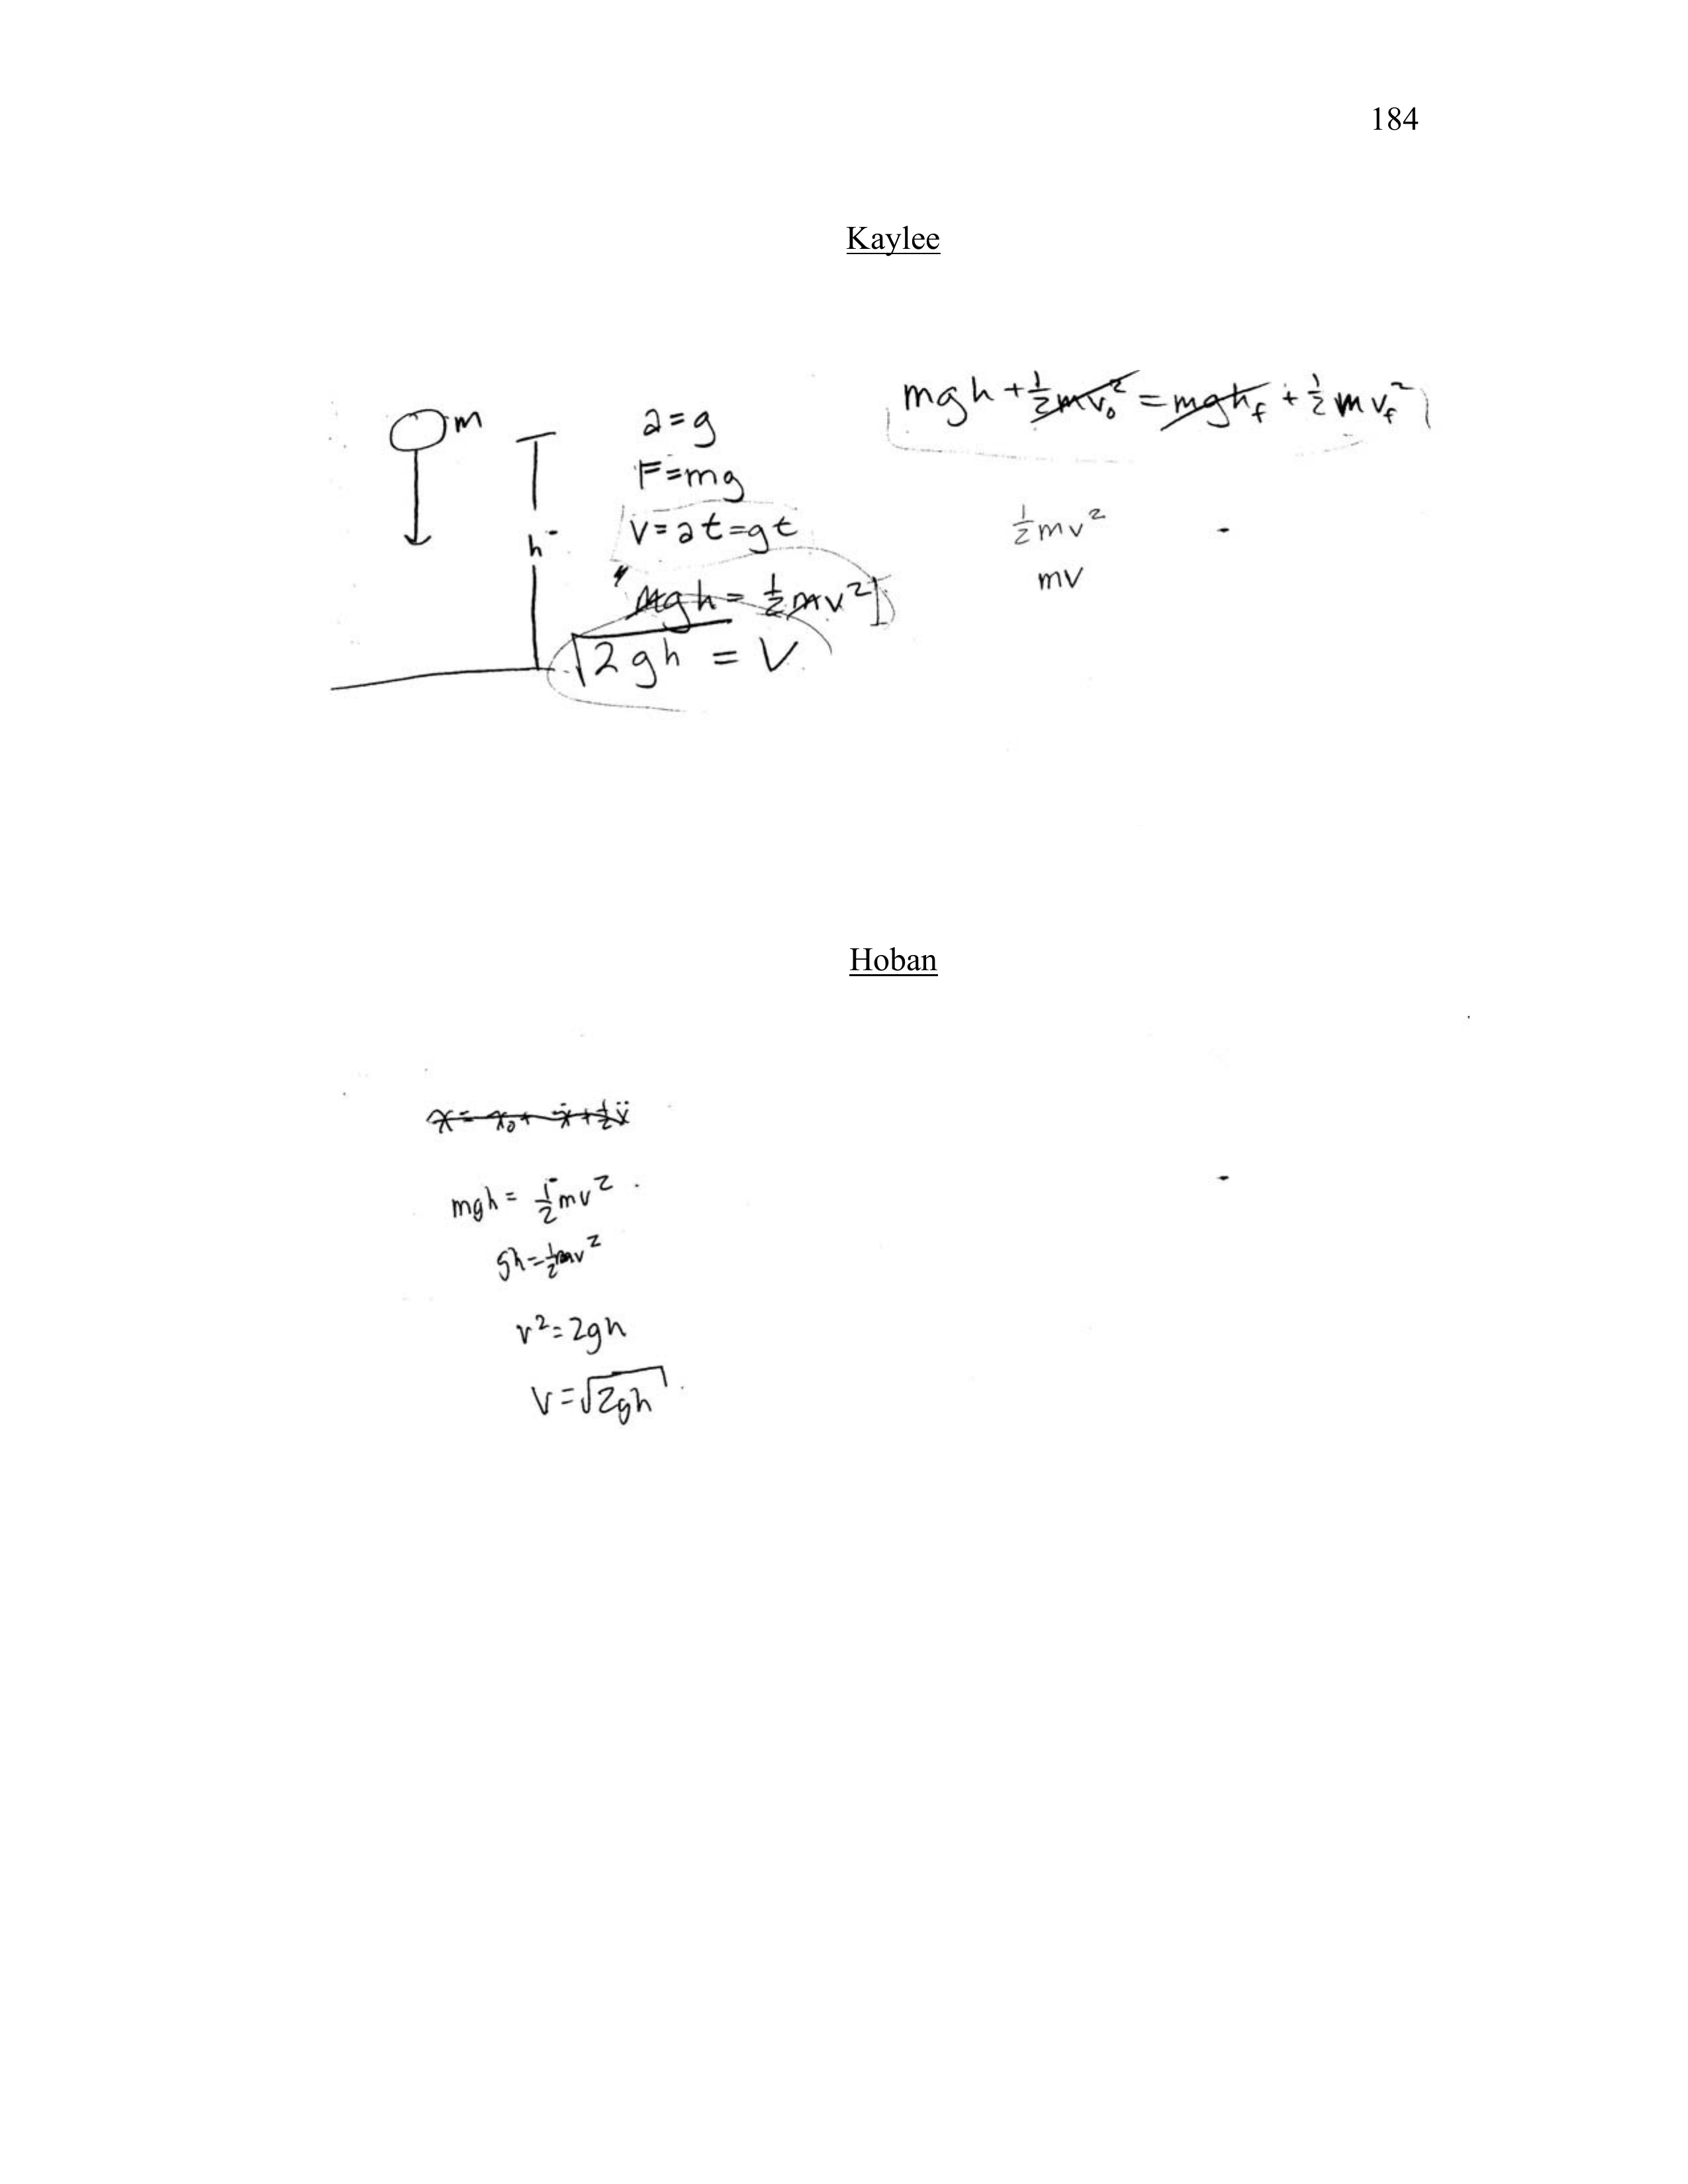 184
Kaylee
m
h
a=g
F=mg
v=at=gt
mgh = ½mv²
√2gh = V
mgh + ½mv₀² = mghf + ½mvf²
½mv²
mv
Hoban
x = x₀ + ẋ + ½ẍ
mgh = ½mv²
gh = ½mv²
v² = 2gh
V = √2gh